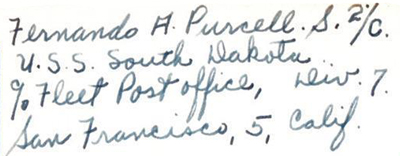 Fernando H. Purcell. S. 2/c.
U.S.S. South Dakota..
% Fleet Post office, Div. 7.
San Francisco, 5, Calif.